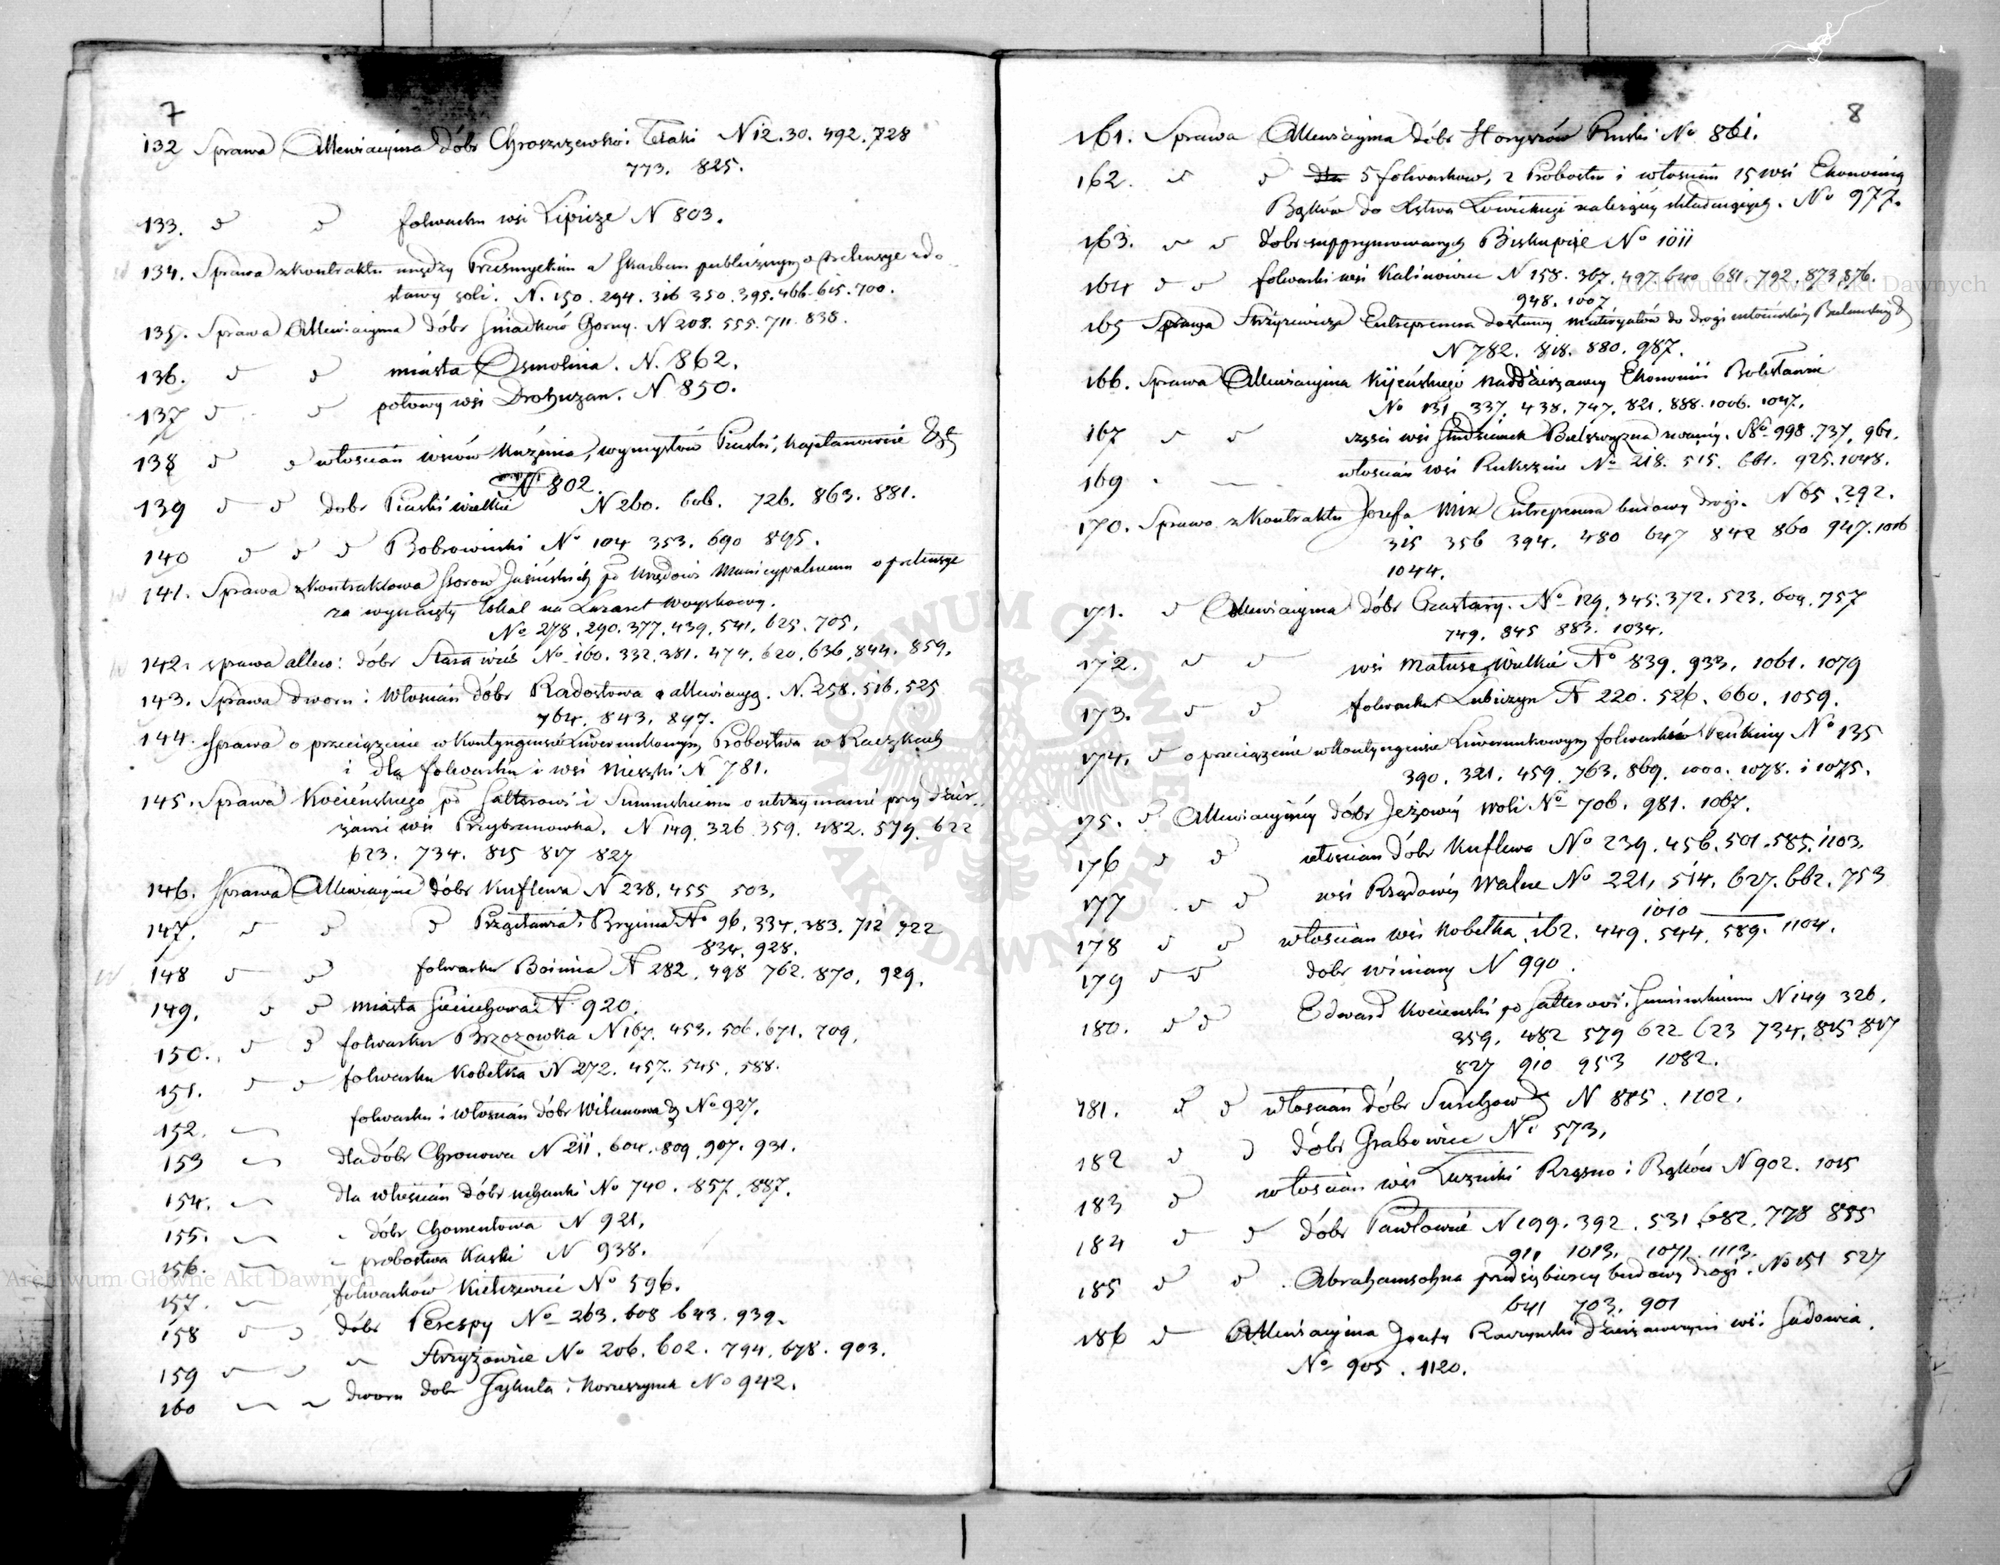 7
132 Sprawa Allewiacyjna dóbr Chroszczewka: Telaki N 12. 30. 492. 728
773. 825.
133. folwarku wsi Lipicze N 803.
134. Sprawa z kontraktu między Przesmyckim a Skarbem publicznym o pretensye z do
stawy soli. N. 150. 294. 316 350. 395. 466. 615. 700.
135. Sprawa Allewiacyjna dóbr Gniadków Gorny. N 208. 555. 711. 838.
136. miasta Osmolina. N. 862.
137 połowy wsi Drohuzan. N 850.
138 włoscian wsiów Kuźmia, wymysłów Piaski, Kapitanowice
N 802.
139 dobr Piaski wielkie N 260. 606. 726. 863. 881.
140 Bobrowinki No 104 353. 690 895.
141. Sprawa z kontraktowa pko Urzędowi Municypalnemu o pretensye
za wynaięty lokal na Lazaret woyskowy.
No 278. 290. 377. 439. 541. 625. 705.
142. sprawa allew: dóbr Stara wieś No 160. 332. 381. 474. 620. 636. 844. 859.
143. Sprawa dworu i Włoscian dóbr Radostowa o allewiacyą. N. 258. 516. 525
764. 843. 847.
144. Sprawa o przeciążenie w Kontyngensie Liwerunkowym Probostwa w Raczkach
i dla folwarku i wsi Nieszki N 781.
145. Sprawa Kocieńskiego pko Salterowi i Suminskiemu o utrzymanie przy dzier.
żawie wsi Przybranowka. N 149. 326 359. 482. 579. 622
623. 734. 815 817 827
146. Sprawa Allewiacyjna dóbr Kuflewa N 238. 455 503.
147. Brzyma No 96. 334. 383. 712 722
834. 928.
148 folwarku Boimia N 282. 498 762. 870. 929.
149. Miasta Sieciechowa N 920.
150. folwarku Brzozowka N 167. 453. 506. 671. 709.
151. folwarku Kobelka N 272. 457. 545. 588.
152. folwarku i włoscian dóbr Wilanowa No 927.
153 dla dóbr Chronowa N 211. 604. 809. 907. 931.
154. dla włoscian dóbr No 740. 857. 887.
155. dóbr Chomentowa N 921.
156. probostwa Kaski N 938.
157. folwarków Kiełczewice No 596.
158 dóbr Perespy No 263. 608 643. 939.
159 Strzyżowice No 206. 602. 794. 678. 903.
160 dworu dobr N 942.
8
161. Sprawa Allewiacyjna dóbr Horyszów Ruski No 861.
162. 5 folwarkow, 2 Probostw i włoscian 15 wsi Ekonomią
Bąków do Xstwa Łowickiego należącą składaiących. No 977.
163. dóbr suppymowanych Biskupice No 1011
164 folwarku wsi Kalinowiec N 158. 367. 497. 640 681. 792. 873. 876.
948. 1007
165 Sprawa Strzyzewicza Entreprenera dostawy materyałów do drogi
N 782. 818. 880. 987.
166. Sprawa Allewiacyjna Kijeńskiego Naddzierzawcy Ekonomii Bolesławie
No 131. 337. 438. 747. 821. 888. 1006. 1047.
167 części wsi zwaney. No 998. 737. 961.
169 włoscian wsi No 218. 515. 661. 925. 1048.
170. Sprawa z Kontraktu Jozefa Mix Entreprenera budowy drogi. N 65. 292.
315 356 394. 480 647 842 860 947. 1016
1044.
171. Allewiacyjna dóbr Czastary. No 129. 345. 372. 523. 609. 757
749. 845 883. 1034.
172. wsi Matusz wielkie No 839. 933. 1061. 1079
173. folwarku Lubiczyn N 220. 526. 660. 1059.
174. o przeciążenie w kontyngensie Liwerunkowym folwarków No 135
390. 321. 459. 763. 869. 1000. 1078. i 1075.
175. Allewiacyjny dóbr Jeżowey Woli No 706. 981. 1067.
176 włoscian dóbr Kuflewa No 239. 456. 501. 585. 1103.
177 wsi Rządowey Walne No 221, 514. 627. 662. 753
1010
178 włoscian wsi Kobelka 162. 449. 544. 589. 1104.
179 dobr winiary N 990.
180. Edward Kocienski pko Salterowi i Suminskiemu N 149 326.
359. 482 579 622 623 734. 815 817
827 910 953 1082.
181. włoscian dóbr N 885. 1102.
182 dóbr Grabowiec No 573.
183 włoscian wsi Luzniki Rząsno i Bąków N 902. 1015
184 dóbr Pawłowice N 199. 392. 531. 682. 778 855
911 1013. 1071 1113.
185 Abrahamsohna przedsiębiercy budowy drogi. No 151 527
641 703. 901
186 Allewiacyjna Jozefy Raczynski dzierzawczyni wsi Sudowia.
No 905. 1120.
Archiwum Główne Akt Dawnych
Archiwum Główne Akt Dawnych
ARCHIWUM GŁÓWNE AKT DAWNYCH